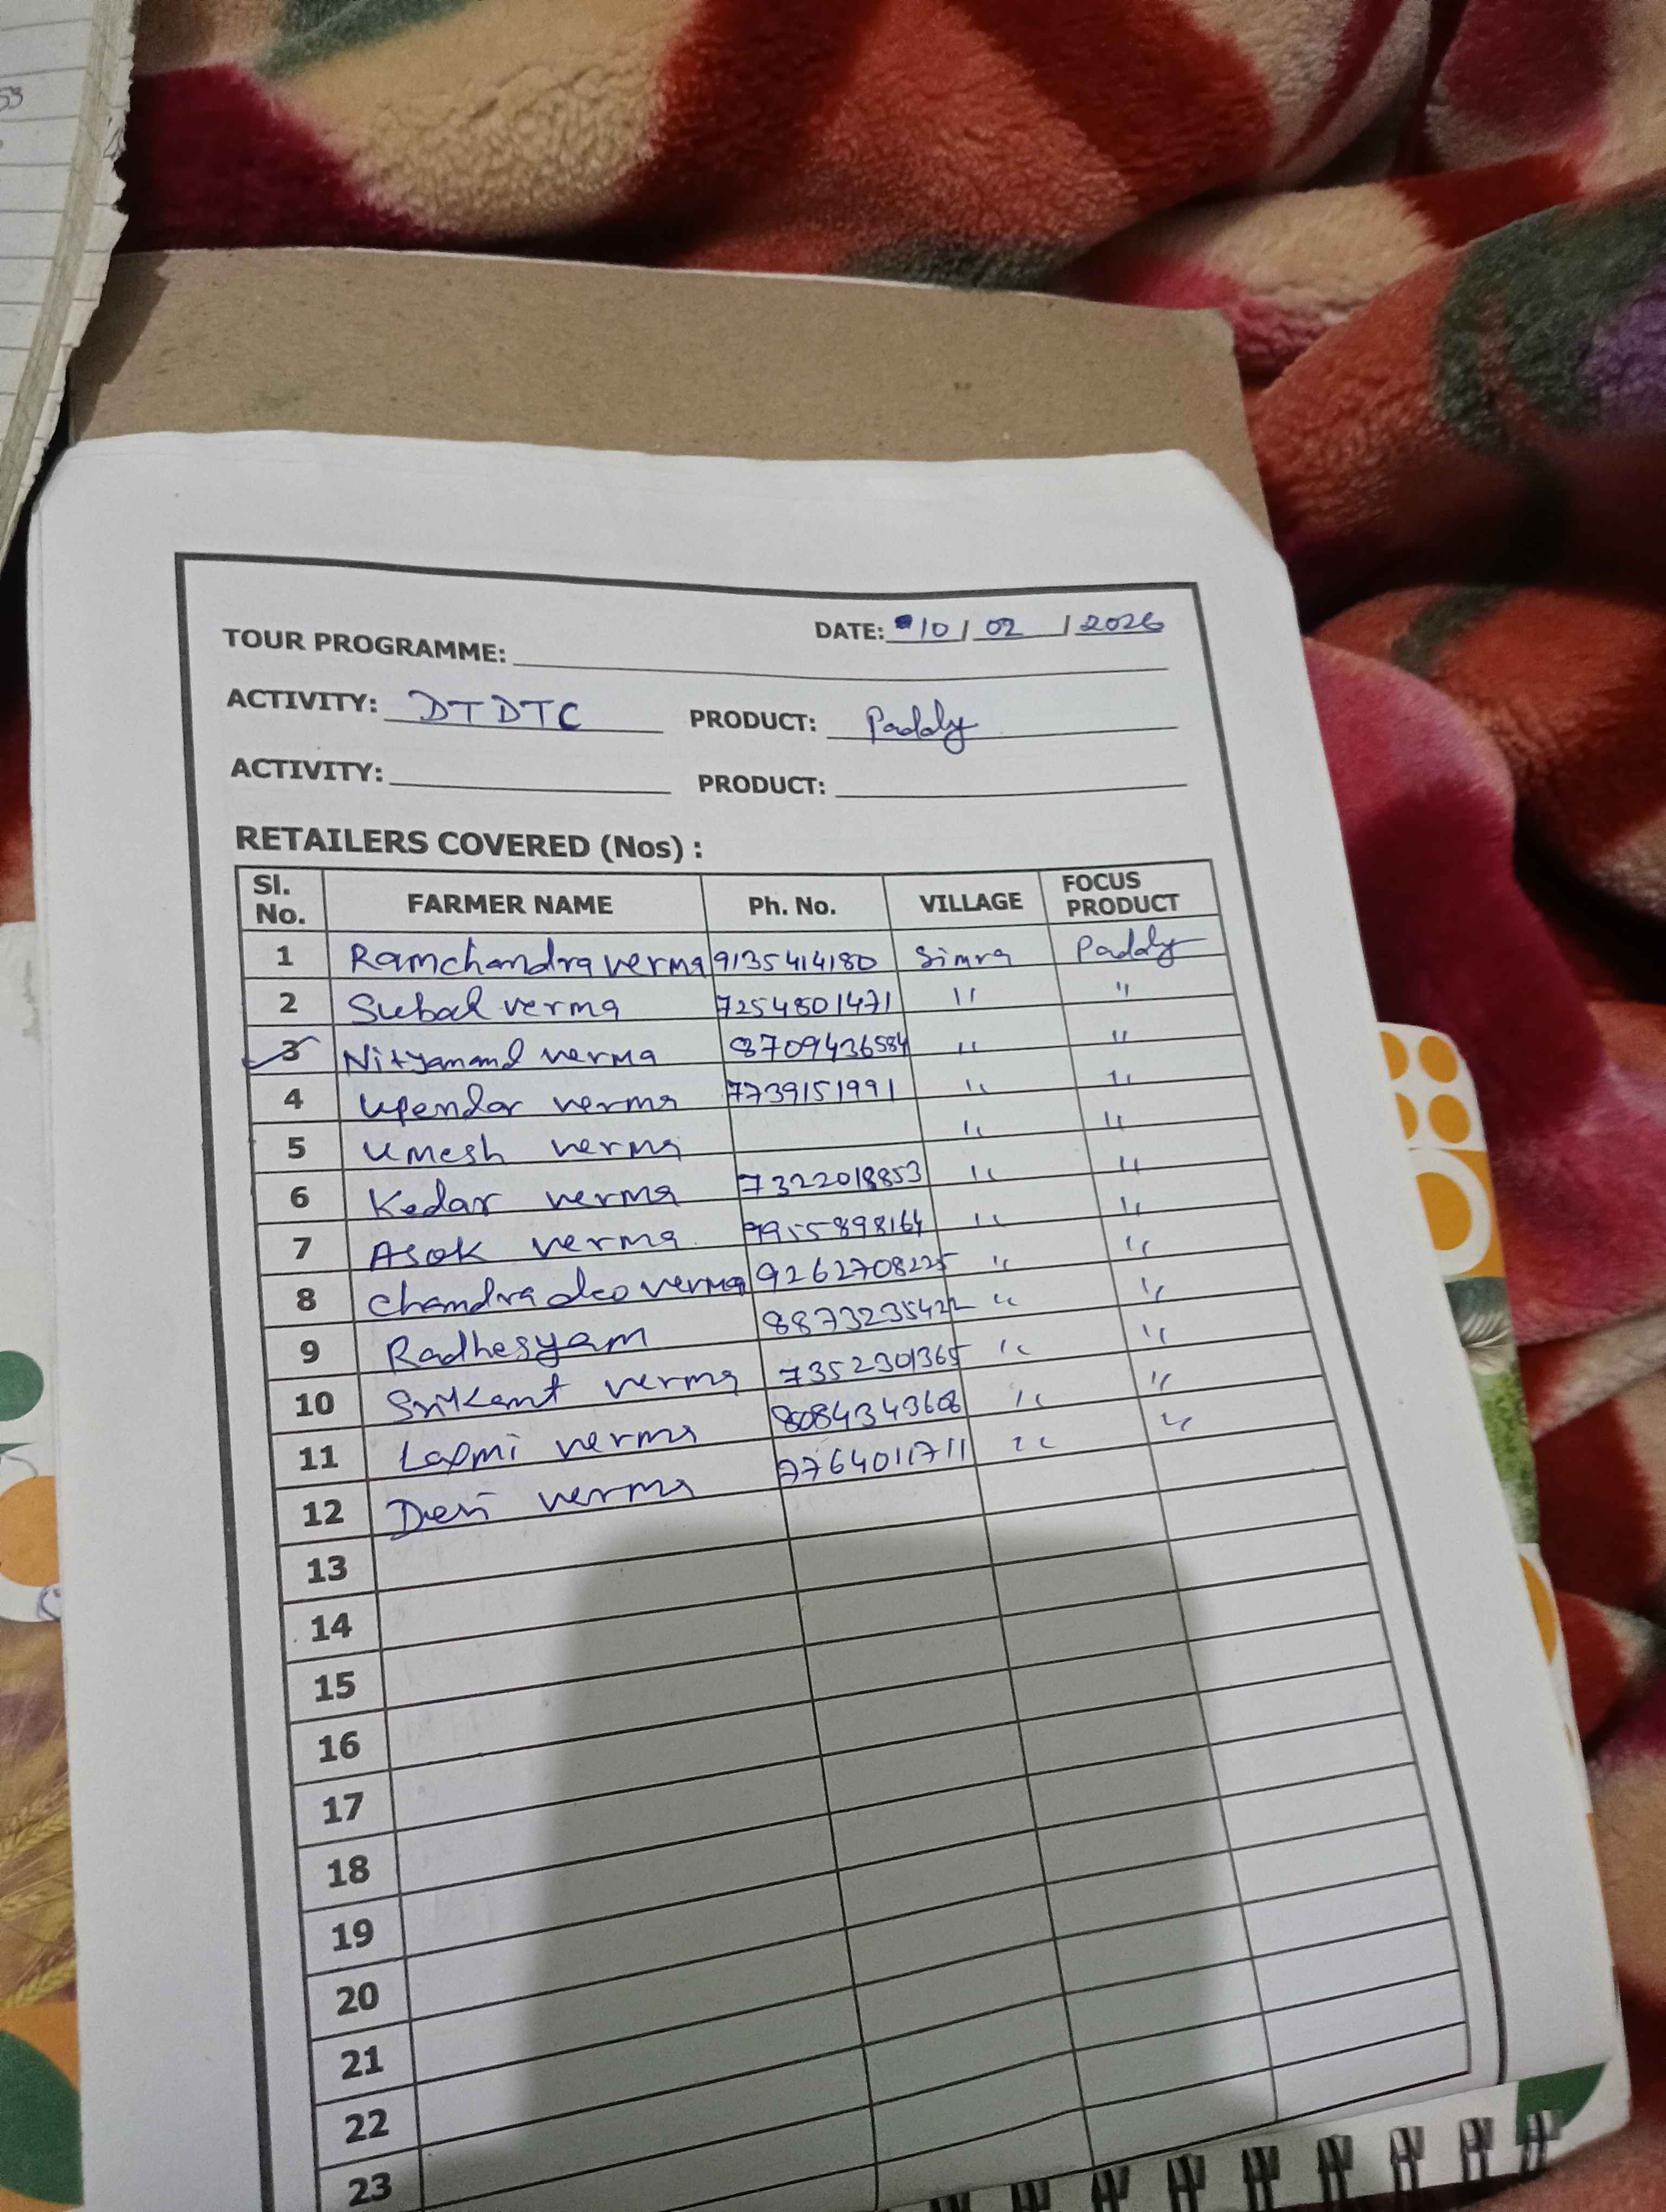 53
DATE: 10/02/2026
TOUR PROGRAMME:
ACTIVITY: DTDTC PRODUCT: Paddy
ACTIVITY: PRODUCT:
RETAILERS COVERED (Nos) :
Sl. No. FARMER NAME Ph. No. VILLAGE FOCUS PRODUCT
1 Ramchandra verma 9135414180 Simra Paddy
2 Subal verma 7254801471 " "
3 Nityanand verma 8709436584 " "
4 Upendar verma 7739151991 " "
5 Umesh verma " "
6 Kedar verma 7322018853 " "
7 Asok verma 9955898164 " "
8 Chandradeo verma 9262708225 " "
9 Radhesyam 8873235422 " "
10 Srikant verma 7352301365 " "
11 Laxmi verma 8084343608 " "
12 verma 7764011711 " "
13
14
15
16
17
18
19
20
21
22
23